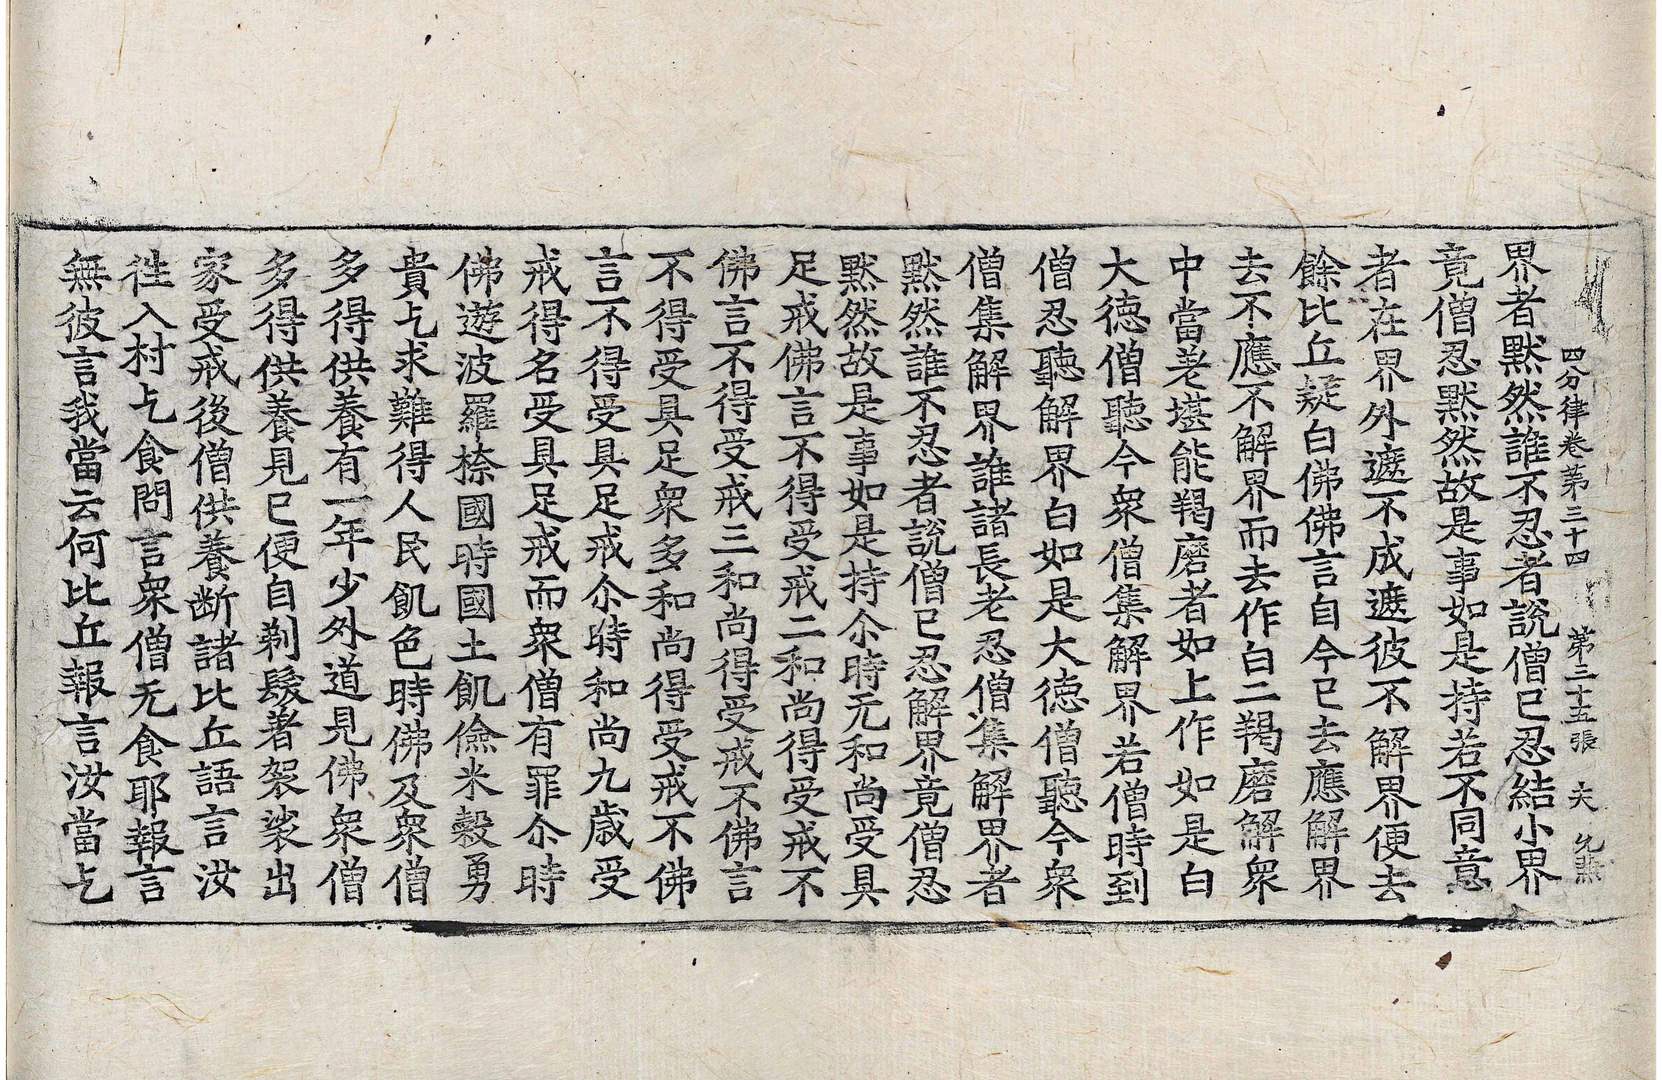 四分律卷第三十四 第三十五張 大 允熙
界者默然誰不忍者說僧已忍結小界
竟僧忍默然故是事如是持若不同意
者在界外遮不成遮彼不解界便去
餘比丘疑白佛佛言自今已去應解界
去不應不解界而去作白二羯磨解衆
中當差堪能羯磨者如上作如是白
大德僧聽今衆僧集解界若僧時到
僧忍聽解界白如是大德僧聽今衆
僧集解界誰諸長老忍僧集解界者
默然誰不忍者說僧已忍解界竟僧忍
默然故是事如是持尒時无和尚受具
足戒佛言不得受戒二和尚得受戒不
佛言不得受戒三和尚得受戒不佛言
不得受具足衆多和尚得受戒不佛
言不得受具足戒尒時和尚九歲受
戒得名受具足戒而衆僧有罪尒時
佛遊波羅㮈國時國土飢儉米穀勇
貴乞求難得人民飢色時佛及衆僧
多得供養有一年少外道見佛衆僧
多得供養見已便自剃髮著袈裟出
家受戒後僧供養断諸比丘語言汝
徃入村乞食問言衆僧无食耶報言
無彼言我當云何比丘報言汝當乞